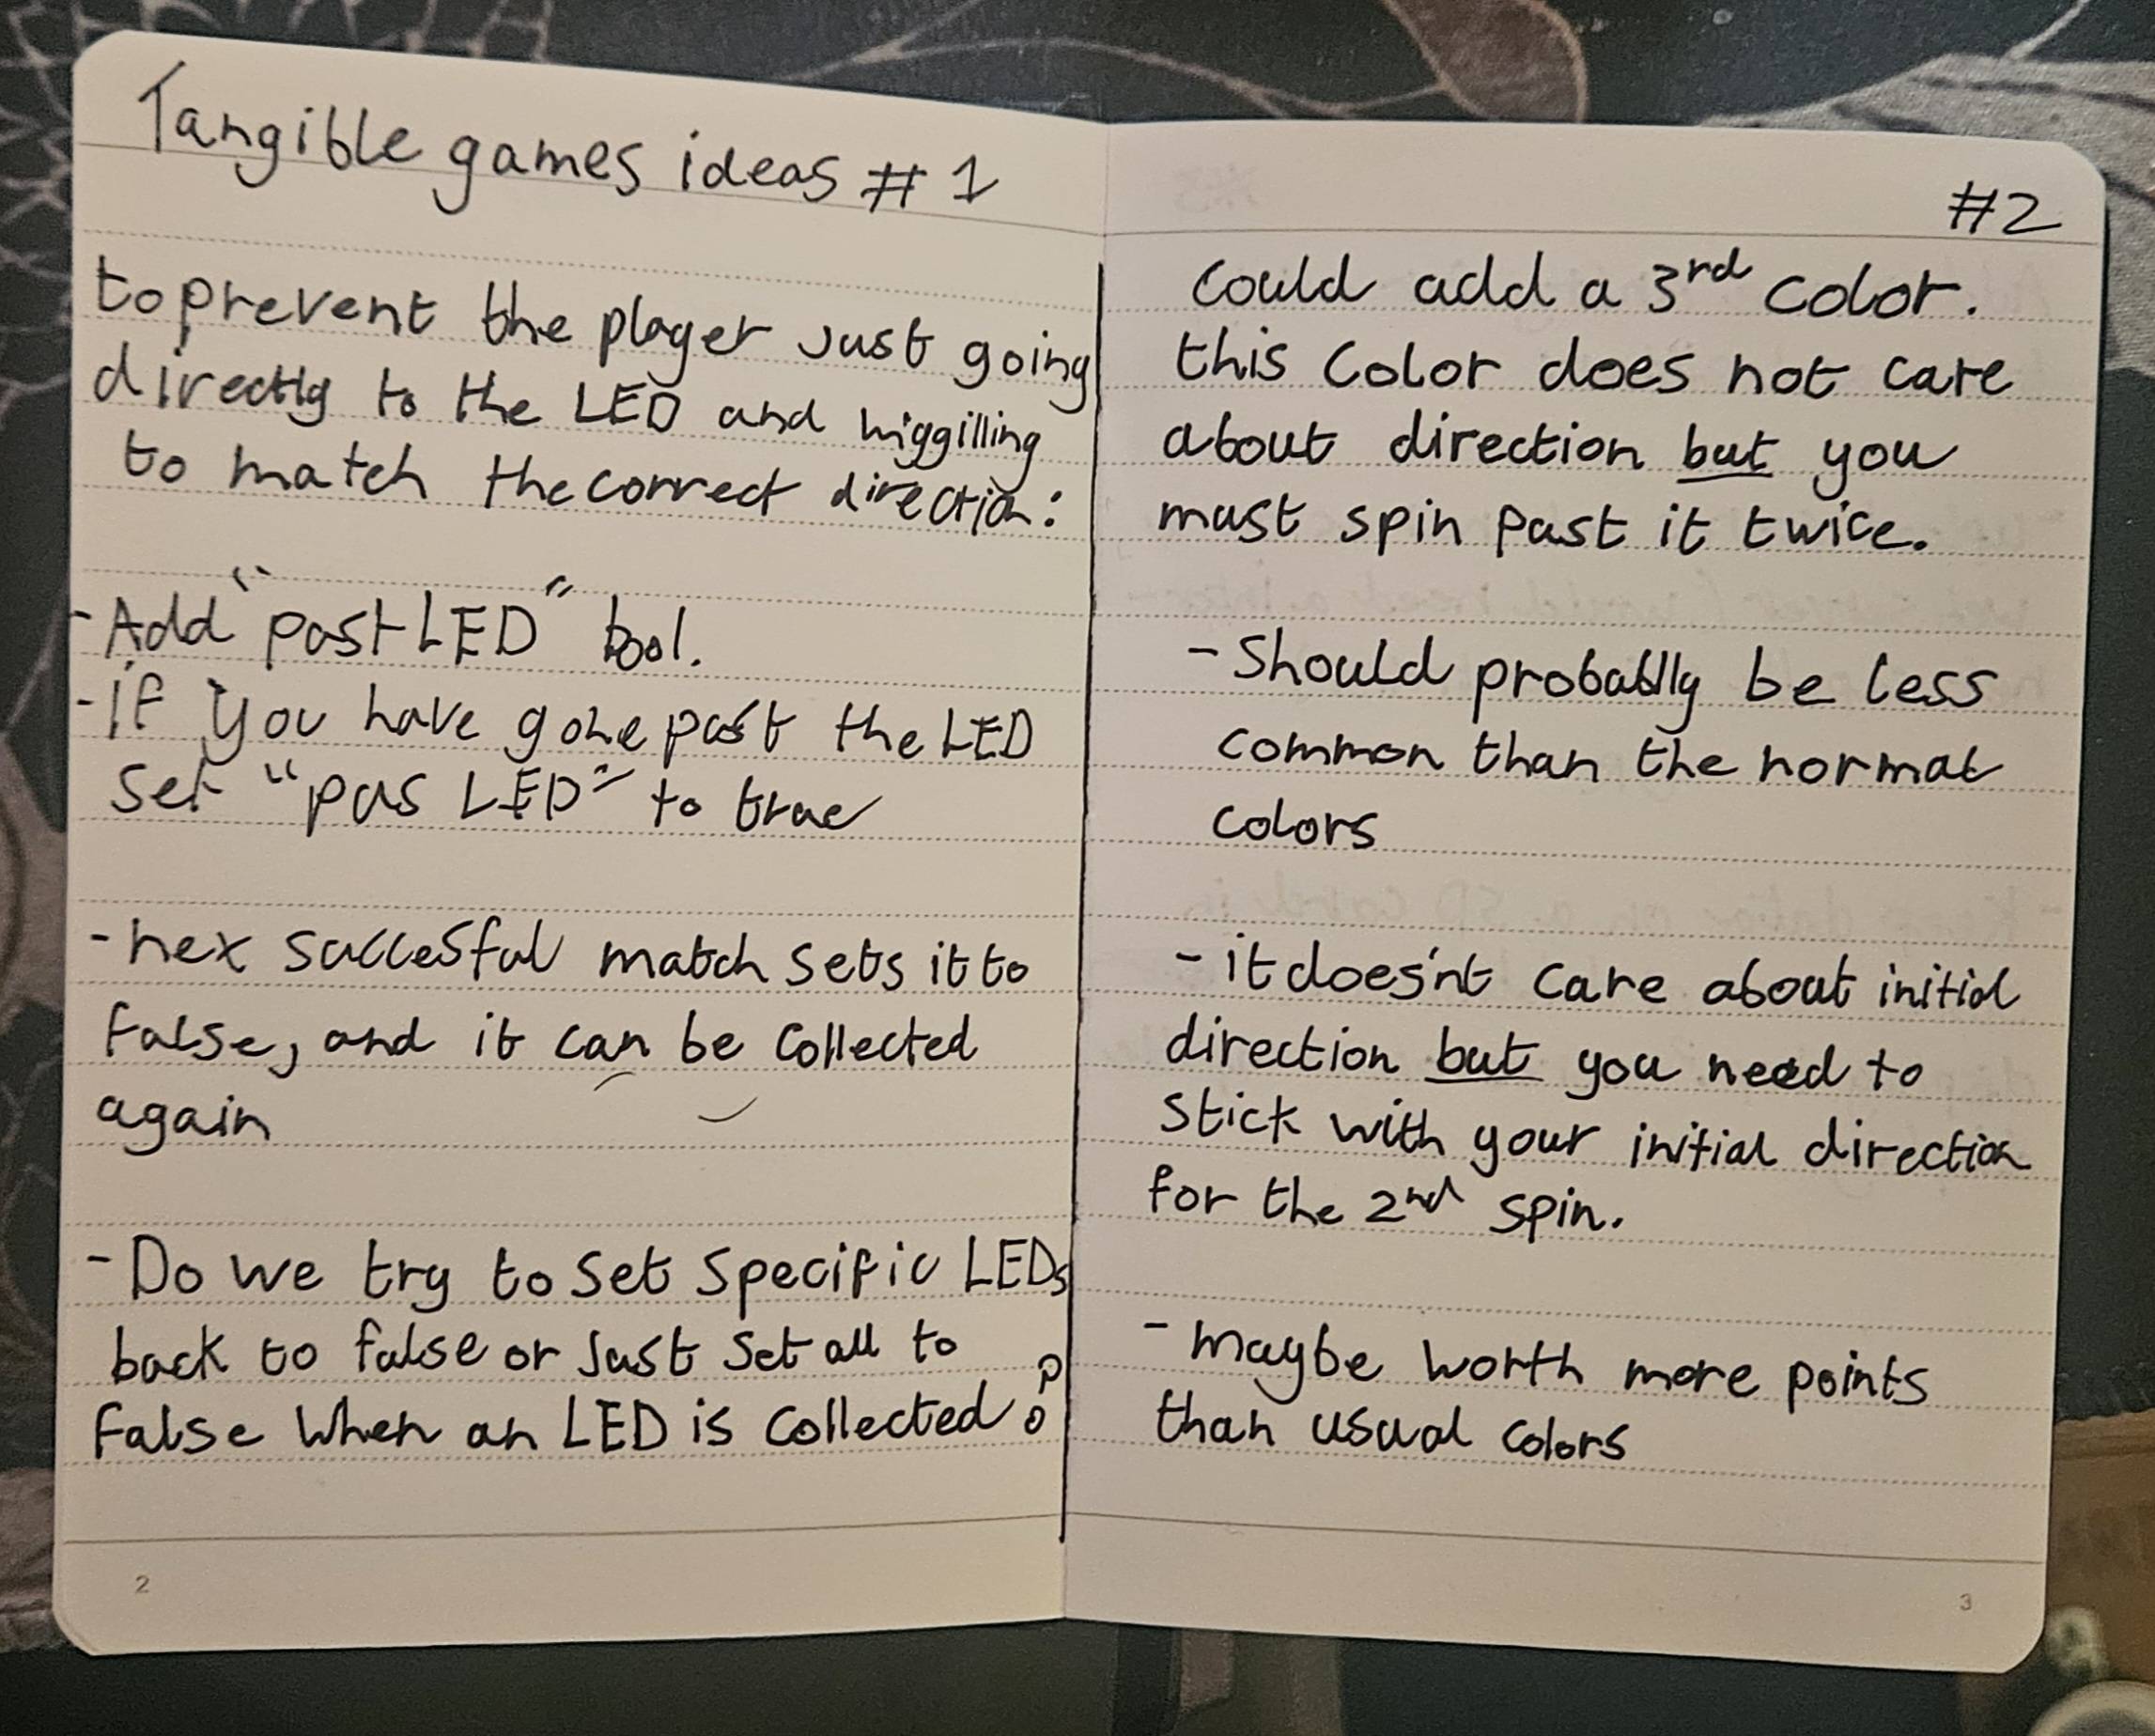 Tangible games ideas #1
to prevent the player just going
directly to the LED and wiggilling
to match the correct direction:
- Add "past LED" bool.
- if you have gone past the LED
set "pas LED" to true
- nex succesful match sets it to
false, and it can be collected
again
- Do we try to set specific LEDs
back to false or just set all to
false when an LED is collected?
2
#2
could add a 3rd color.
this color does not care
about direction but you
must spin past it twice.
- Should probablly be less
common than the normal
colors
- it does'nt care about initial
direction but you need to
stick with your initial direction
for the 2nd spin.
- maybe worth more points
than usual colors
3